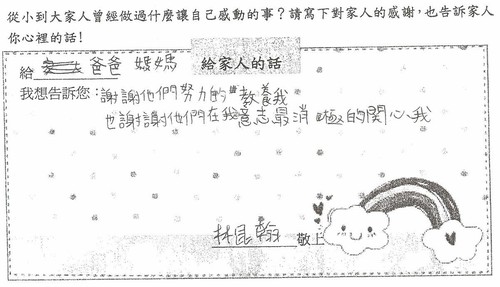 從小到大家人曾經做過什麼讓自己感動的事？請寫下對家人的感謝，也告訴家人
你心裡的話！
給家人的話
給 爸爸 媽媽
我想告訴您：謝謝他們努力的教養我
也謝謝他們在我意志最消極的關心我
林昆翰 敬上